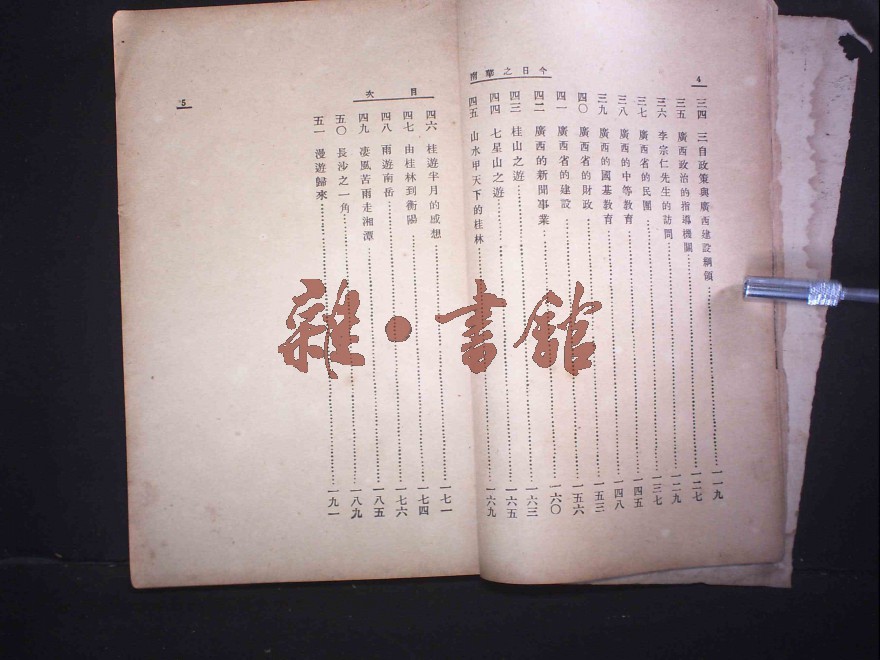 4
今日之華南
三四 三自政策與廣西建設綱領 一一九
三五 廣西政治的指導機關 一二七
三六 李宗仁先生的訪問 一二九
三七 廣西省的民團 一三七
三八 廣西的中等教育 一四五
三九 廣西的國基教育 一四八
四〇 廣西省的財政 一五三
四一 廣西省的建設 一五六
四二 廣西的新聞事業 一六〇
四三 桂山之遊 一六三
四四 七星山之遊 一六五
四五 山水甲天下的桂林 一六九
目次
5
四六 桂遊半月的感想 一七一
四七 由桂林到衡陽 一七四
四八 雨遊南岳 一七六
四九 凄風苦雨走湘潭 一八五
五〇 長沙之一角 一八九
五一 漫遊歸來 一九一
雜·書館